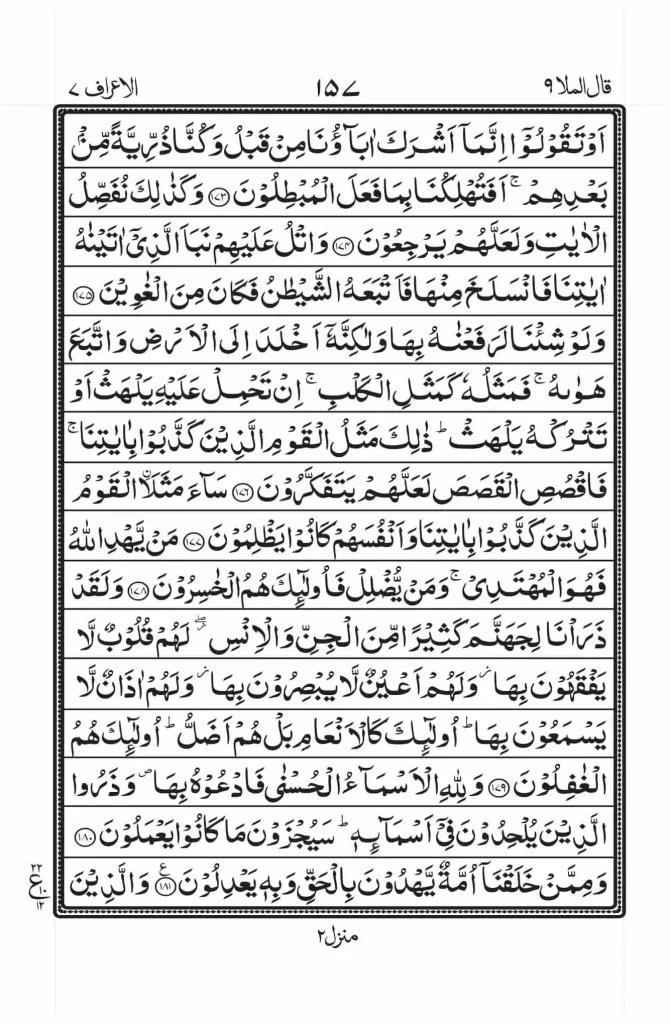 قال الملا ۹ ۱۵۷ الاعراف ۷
اَوْ تَقُوْلُوْۤا اِنَّمَاۤ اَشْرَكَ اٰبَآؤُنَا مِنْ قَبْلُ وَكُنَّا ذُرِّيَّةً مِّنْۢ
بَعْدِهِمْ ۚ اَفَتُهْلِكُنَا بِمَا فَعَلَ الْمُبْطِلُوْنَ ﴿۱۷۳﴾ وَكَذٰلِكَ نُفَصِّلُ
الْاٰيٰتِ وَلَعَلَّهُمْ يَرْجِعُوْنَ ﴿۱۷۴﴾ وَاتْلُ عَلَيْهِمْ نَبَاَ الَّذِيْۤ اٰتَيْنٰهُ
اٰيٰتِنَا فَانْسَلَخَ مِنْهَا فَاَتْبَعَهُ الشَّيْطٰنُ فَكَانَ مِنَ الْغٰوِيْنَ ﴿۱۷۵﴾
وَلَوْ شِئْنَا لَرَفَعْنٰهُ بِهَا وَلٰكِنَّهٗۤ اَخْلَدَ اِلَى الْاَرْضِ وَاتَّبَعَ
هَوٰىهُ ۚ فَمَثَلُهٗ كَمَثَلِ الْكَلْبِ ۚ اِنْ تَحْمِلْ عَلَيْهِ يَلْهَثْ اَوْ
تَتْرُكْهُ يَلْهَثْ ؕ ذٰلِكَ مَثَلُ الْقَوْمِ الَّذِيْنَ كَذَّبُوْا بِاٰيٰتِنَا ۚ
فَاقْصُصِ الْقَصَصَ لَعَلَّهُمْ يَتَفَكَّرُوْنَ ﴿۱۷۶﴾ سَآءَ مَثَلَاۨ الْقَوْمُ
الَّذِيْنَ كَذَّبُوْا بِاٰيٰتِنَا وَاَنْفُسَهُمْ كَانُوْا يَظْلِمُوْنَ ﴿۱۷۷﴾ مَنْ يَّهْدِ اللّٰهُ
فَهُوَ الْمُهْتَدِيْ ۚ وَمَنْ يُّضْلِلْ فَاُولٰٓئِكَ هُمُ الْخٰسِرُوْنَ ﴿۱۷۸﴾ وَلَقَدْ
ذَرَاْنَا لِجَهَنَّمَ كَثِيْرًا مِّنَ الْجِنِّ وَالْاِنْسِ ۖ لَهُمْ قُلُوْبٌ لَّا
يَفْقَهُوْنَ بِهَا ز وَلَهُمْ اَعْيُنٌ لَّا يُبْصِرُوْنَ بِهَا ز وَلَهُمْ اٰذَانٌ لَّا
يَسْمَعُوْنَ بِهَا ؕ اُولٰٓئِكَ كَالْاَنْعَامِ بَلْ هُمْ اَضَلُّ ؕ اُولٰٓئِكَ هُمُ
الْغٰفِلُوْنَ ﴿۱۷۹﴾ وَلِلّٰهِ الْاَسْمَآءُ الْحُسْنٰى فَادْعُوْهُ بِهَا ص وَذَرُوا
الَّذِيْنَ يُلْحِدُوْنَ فِيْۤ اَسْمَآئِهٖ ؕ سَيُجْزَوْنَ مَا كَانُوْا يَعْمَلُوْنَ ﴿۱۸۰﴾
وَمِمَّنْ خَلَقْنَاۤ اُمَّةٌ يَّهْدُوْنَ بِالْحَقِّ وَبِهٖ يَعْدِلُوْنَ ﴿۱۸۱﴾ ع وَالَّذِيْنَ
۲۲
ع ۱۰
۱۲
منزل ۲